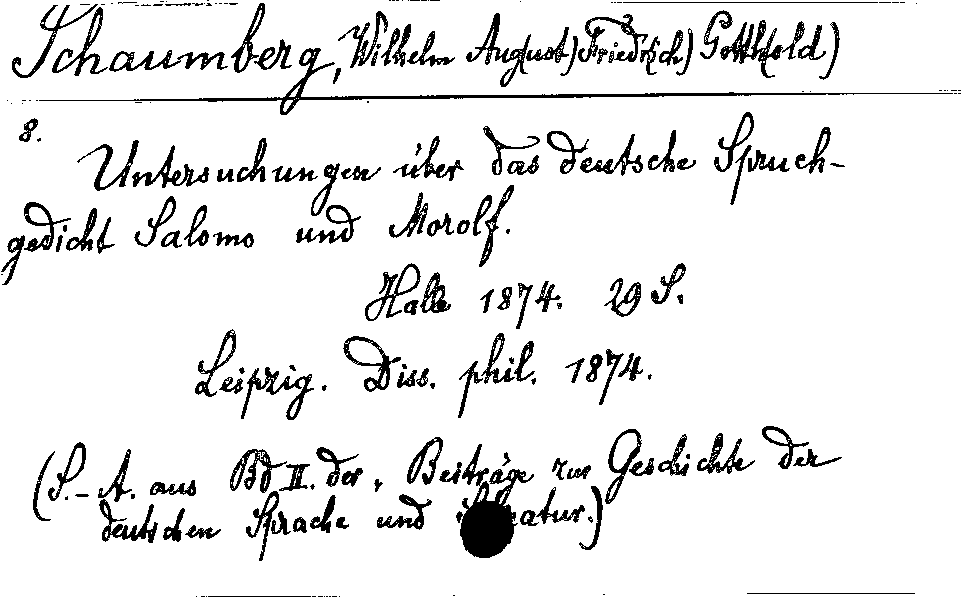 Schaumberg, Wilhelm Aug(ust) Friedr(ich) Gotth(old)
8.
Untersuchungen über das deutsche Spruch-
gedicht Salomo und Morolf.
Halle 1874. 29 S.
Leipzig. Diss. phil. 1874.
(S.-A. aus Bd II. der „Beiträge zur Geschichte der
deutschen Sprache und